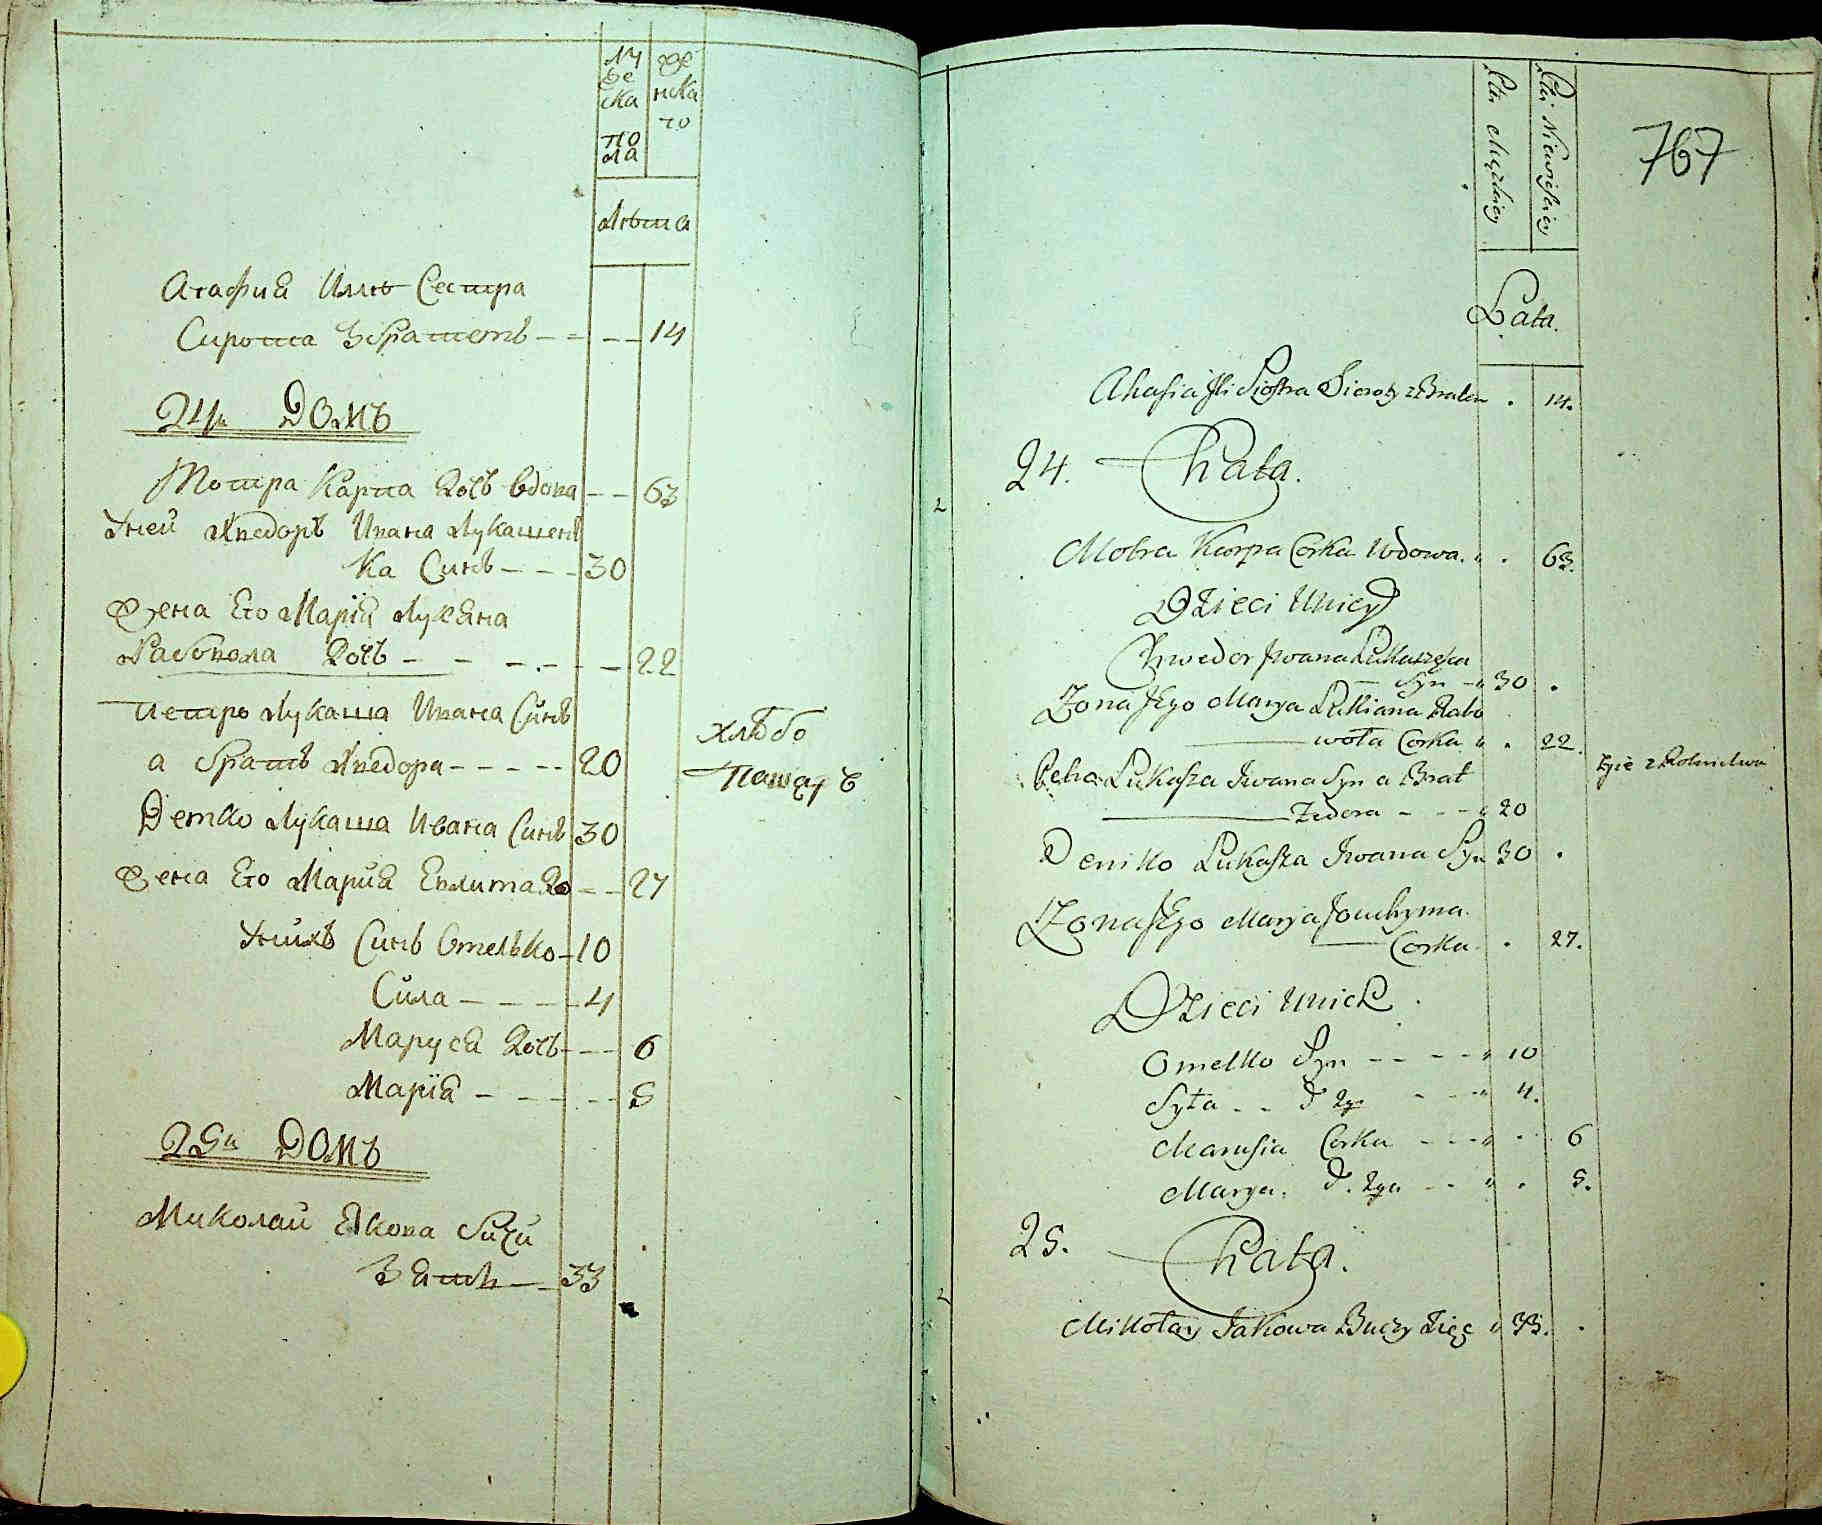 му
же
ска
по
ла
же
нска
го
Лѣта
Агафия Илѣ Сестра
Сирота З братемъ - = - - 14
24й ДОМЪ
Мотра Карпа Дочь вдова - - 63
Уней Хведоръ Ивана Лукашен
ка Синъ - - - 30
Жена Его Марїя Лукяна
Рабовола Дочь - - - . - - - 22
Петро Лукаша Ивана Синъ
а братъ Хведора - - - - - 20
хлѣбо
Пашецъ
Демко Лукаша Ивана Синъ 30
Жена Его Мария До = - 27
Унихъ Синъ Омелько - 10
Сила - - - - 4
Маруся Дочь - - - 6
Марїя - - - - - 5
25й ДОМЪ
Миколай Якова Бучи
Зять - - 33
767
Płci Męzkiey
Płci Niewieściey
Lata.
Ahafia Ili Siostra Sierota z Bratem . 14.
24. Chata.
Motra Karpa Corka Wdowa. " . 63.
Dzieci Unicy
Chwedor Iwana Lukaszęka
Syn - " 30 .
Zona Jego Marya Lukiana Rabo
woła Corka " . 22.
Petro Lukasza Iwana Syn a Brat
Fedora - - - " 20
żyie z Rolnictwa
Demko Lukasza Iwana Syn 30 .
Zona Jego Marya
Corka . . 27.
Dzieci Unich .
Omelko Syn - - - - " 10
Syła - - - - " 4.
Marusia Corka - - - " . 6
Marya. - - " . 5.
25. Chata.
Mikołay Jakowa Buczy Zięć " 33. .